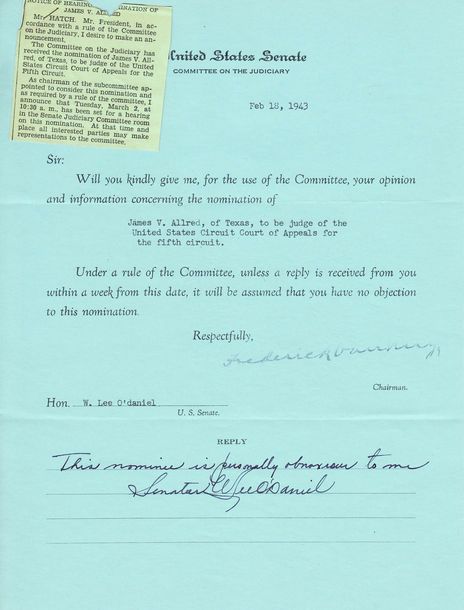 NOTICE OF HEARING ON NOMINATION OF
JAMES V. ALLRED
Mr. HATCH. Mr. President, in ac-
cordance with a rule of the Committee
on the Judiciary, I desire to make an an-
nouncement.
The Committee on the Judiciary has
received the nomination of James V. All-
red, of Texas, to be judge of the United
States Circuit Court of Appeals for the
Fifth Circuit.
As chairman of the subcommittee ap-
pointed to consider this nomination and
as required by a rule of the committee, I
announce that Tuesday, March 2, at
10:30 a. m., has been set for a hearing
in the Senate Judiciary Committee room
on this nomination. At that time and
place all interested parties may make
representations to the committee.
United States Senate
COMMITTEE ON THE JUDICIARY
Feb 18, 1943
Sir:
Will you kindly give me, for the use of the Committee, your opinion
and information concerning the nomination of
James V. Allred, of Texas, to be judge of the
United States Circuit Court of Appeals for
the fifth circuit.
Under a rule of the Committee, unless a reply is received from you
within a week from this date, it will be assumed that you have no objection
to this nomination.
Respectfully,
Frederick VanNuys
Chairman.
Hon. W. Lee O'daniel
U. S. Senate.
REPLY
This nominee is personally obnoxious to me
Senator W Lee O'Daniel